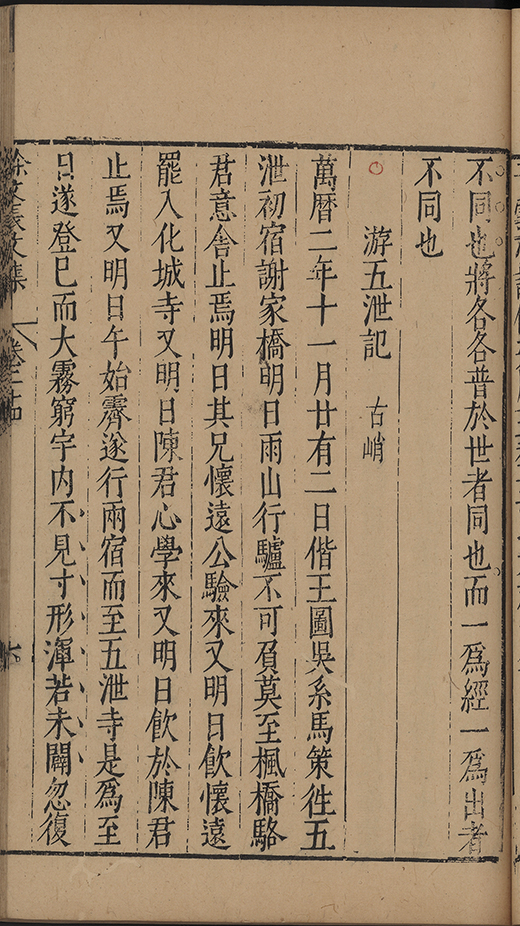 不同也將各各普於世者同也而一爲經一爲出者
不同也
游五泄記 古峭
萬曆二年十一月廿有二日偕王圖吳系馬策徃五
泄初宿謝家橋明日雨山行驢不可負莫至楓橋駱
君意舍止焉明日其兄懷遠公驗來又明日飮懷遠
罷入化城寺又明日陳君心學來又明日飮於陳君
止焉又明日午始霽遂行兩宿而至五泄寺是爲至
日遂登巳而大霧窮宇内不見寸形渾若未闢忽復
徐文長文集 卷二十四